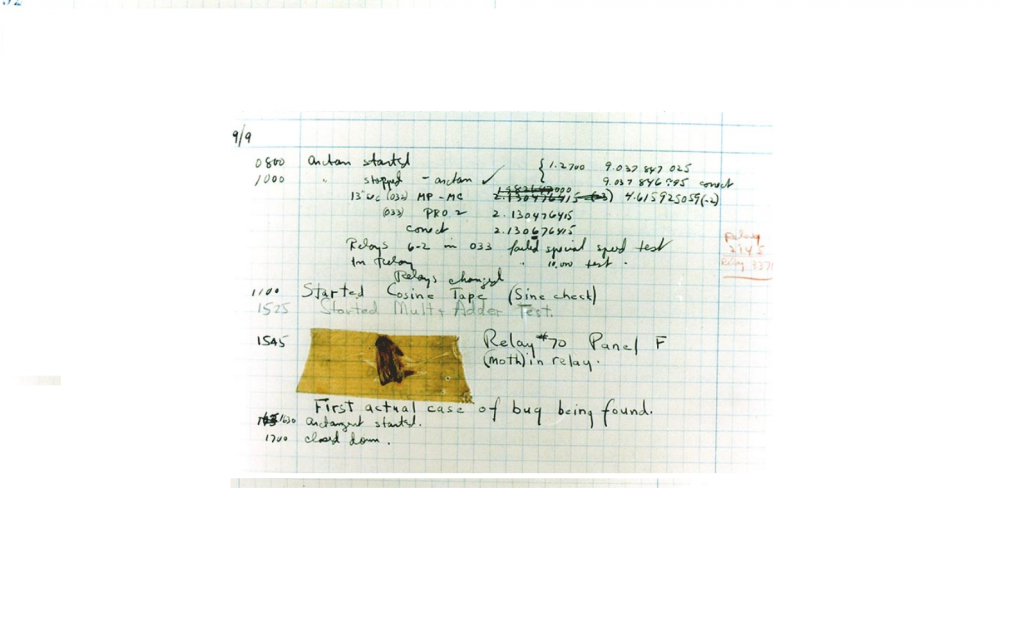 9/9
0800 Antan started { 1.2700 9.037 847 025
1000 " stopped - antan ✓ 9.037 846 995 correct
13"uc (032) MP - MC 2.130476415 (-3) 4.615925059(-2)
(033) PRO 2 2.130476415
correct 2.130676415
Relays 6-2 in 033 failed special speed test
in relay " 10,000 test .
Relays changed
Relay
Relay 337
1100 Started Cosine Tape (Sine check)
1525 Started Mult + Adder Test.
1545 Relay #70 Panel F
(moth) in relay.
First actual case of bug being found.
1630 antangent started.
1700 closed down.